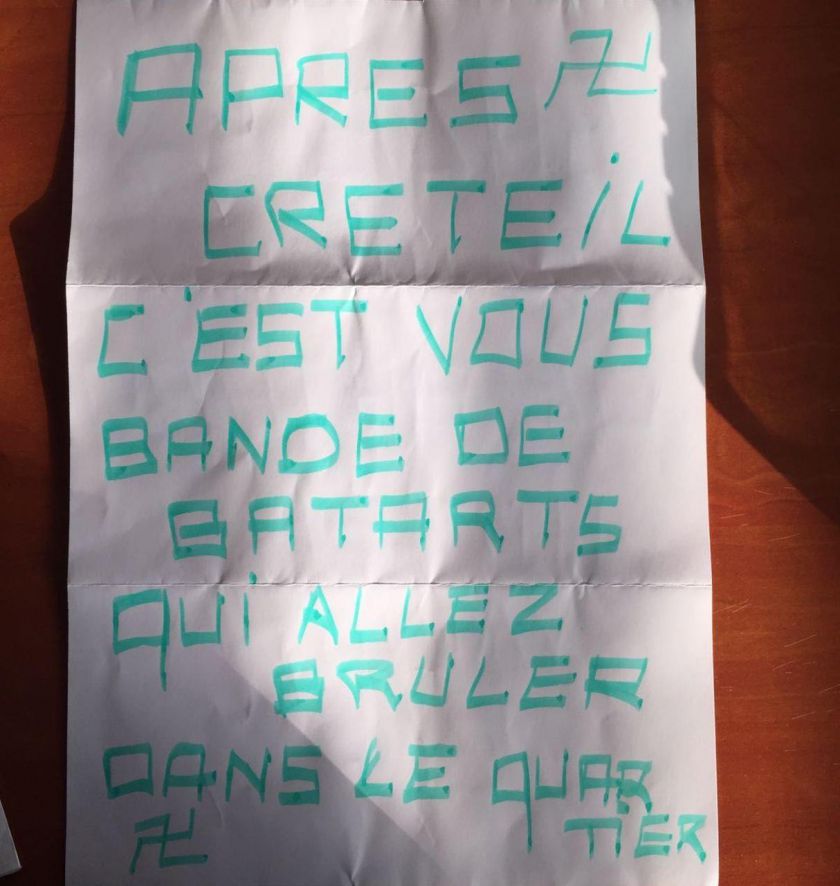 APRES
CRETEiL
C'EST VOUS
BANDE DE
BATARTS
QUi ALLEZ
BRULER
DANS LE QUAR
TIER